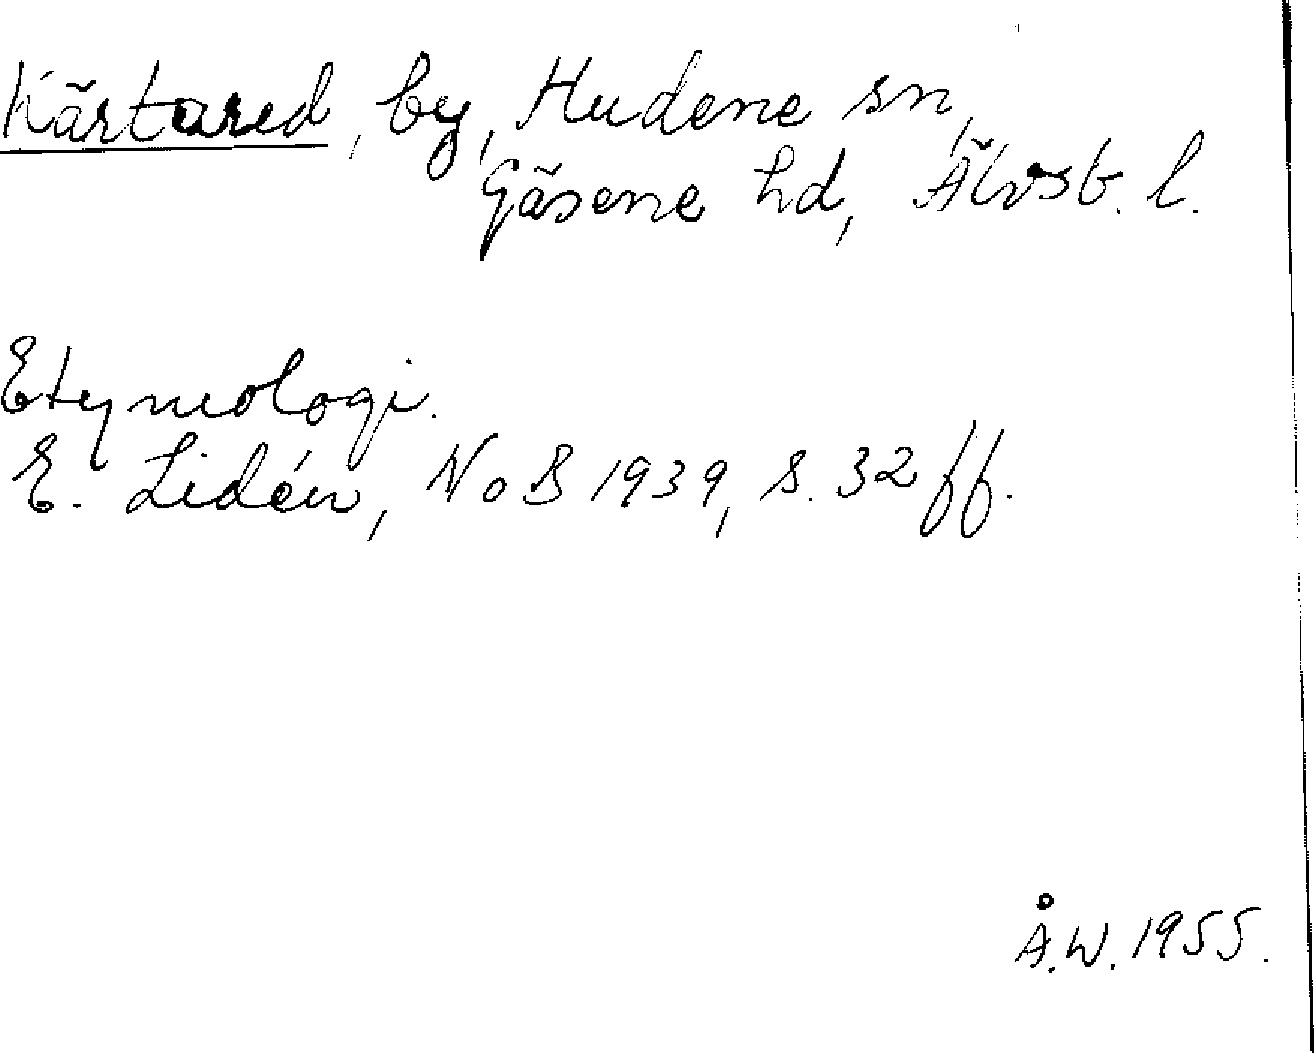 Kärtared, by, Hudene sn,
Gäsene hd, Älvsb. l.
Etymologi.
E. Lidén, NoB 1939, s. 32 ff.
Å.W. 1955.